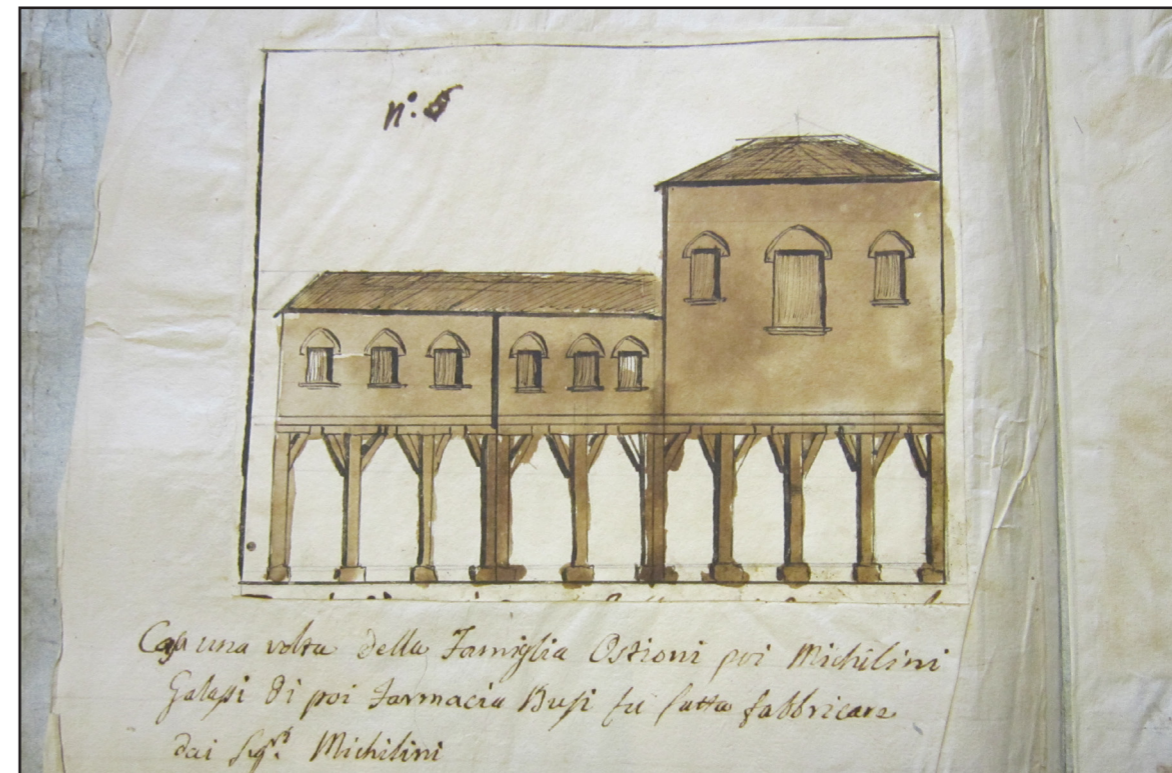 n.° 5
Casa una volta della Famiglia Ostioni poi Michilini
Galassi di poi Farmacia Busi fu fatta fabbricare
dai Sig.ri Michilini